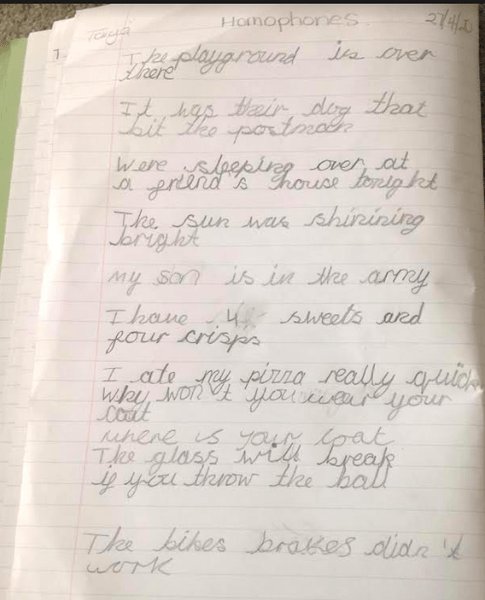 Tanya Homophones. 27/4/20
7.
The playground is over
there
It was their dog that
bit the postman
Were sleeping over at
a friend's house tonight
The sun was shinining
bright
my son is in the army
I have 4 sweets and
four crisps
I ate my pizza really quick
why won't you wear your
coat
where is your coat
The glass will break
if you throw the ball
The bikes brakes didn't
work